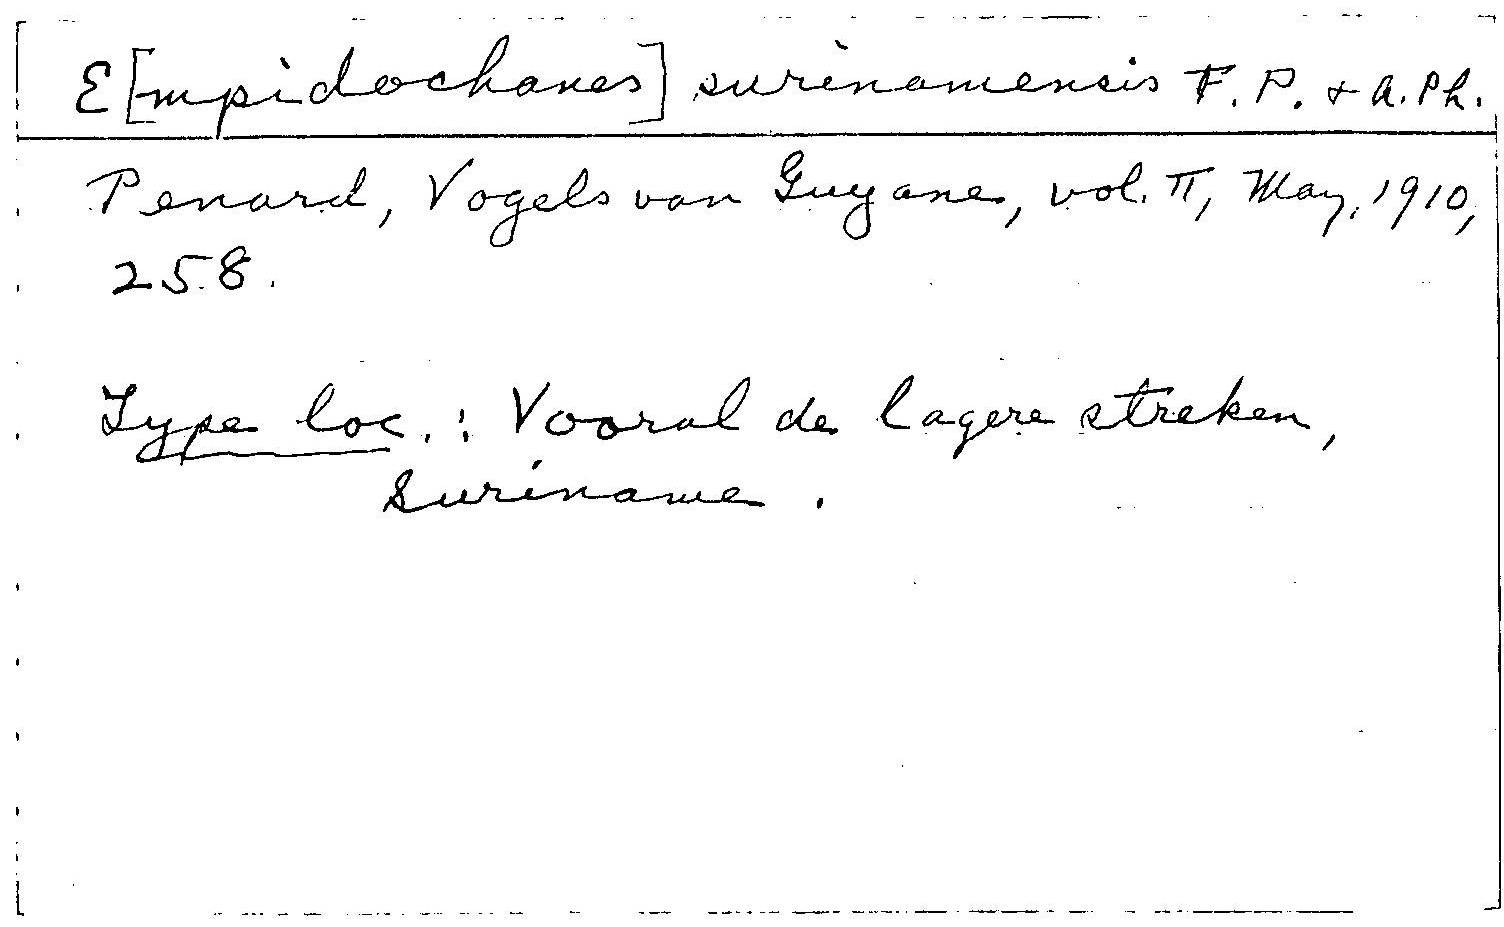 E[mpidochanes] surinamensis F. P. + A. Ph.
Penard, Vogels van Guyana, vol. II, May, 1910,
258.
Type loc.: Vooral de lagere streken,
Suriname.